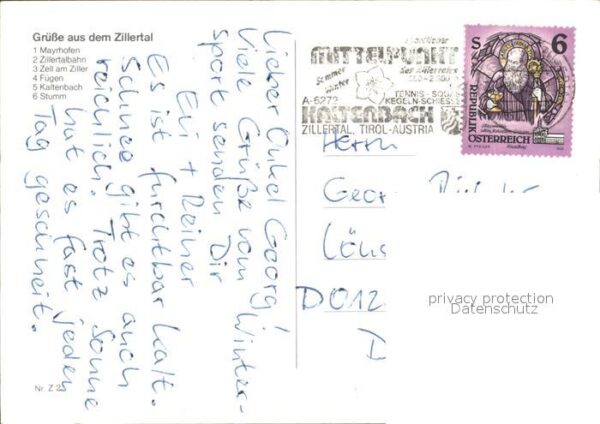 Grüße aus dem Zillertal
1 Mayrhofen
2 Zillertalbahn
3 Zell am Ziller
4 Fügen
5 Kaltenbach
6 Stumm
Lieber Onkel Georg!
Viele Grüße vom Winter-
sport senden Dir
Evi + Reiner
Es ist furchtbar kalt.
Schnee gibt es auch
reichlich. Trotz
hat es fast jeden
Tag gescheint.
Sonne
Nr. Z 25
MITTELPUNKT
des Zillertales
Sommer
Winter
TENNIS - SQU
KEGELN-SCHIES
A-6272
KALTENBACH
ZILLERTAL, TIROL-AUSTRIA
S 6
REPUBLIK
ÖSTERREICH
Herrn
Geor
D012
privacy protection
Datenschutz